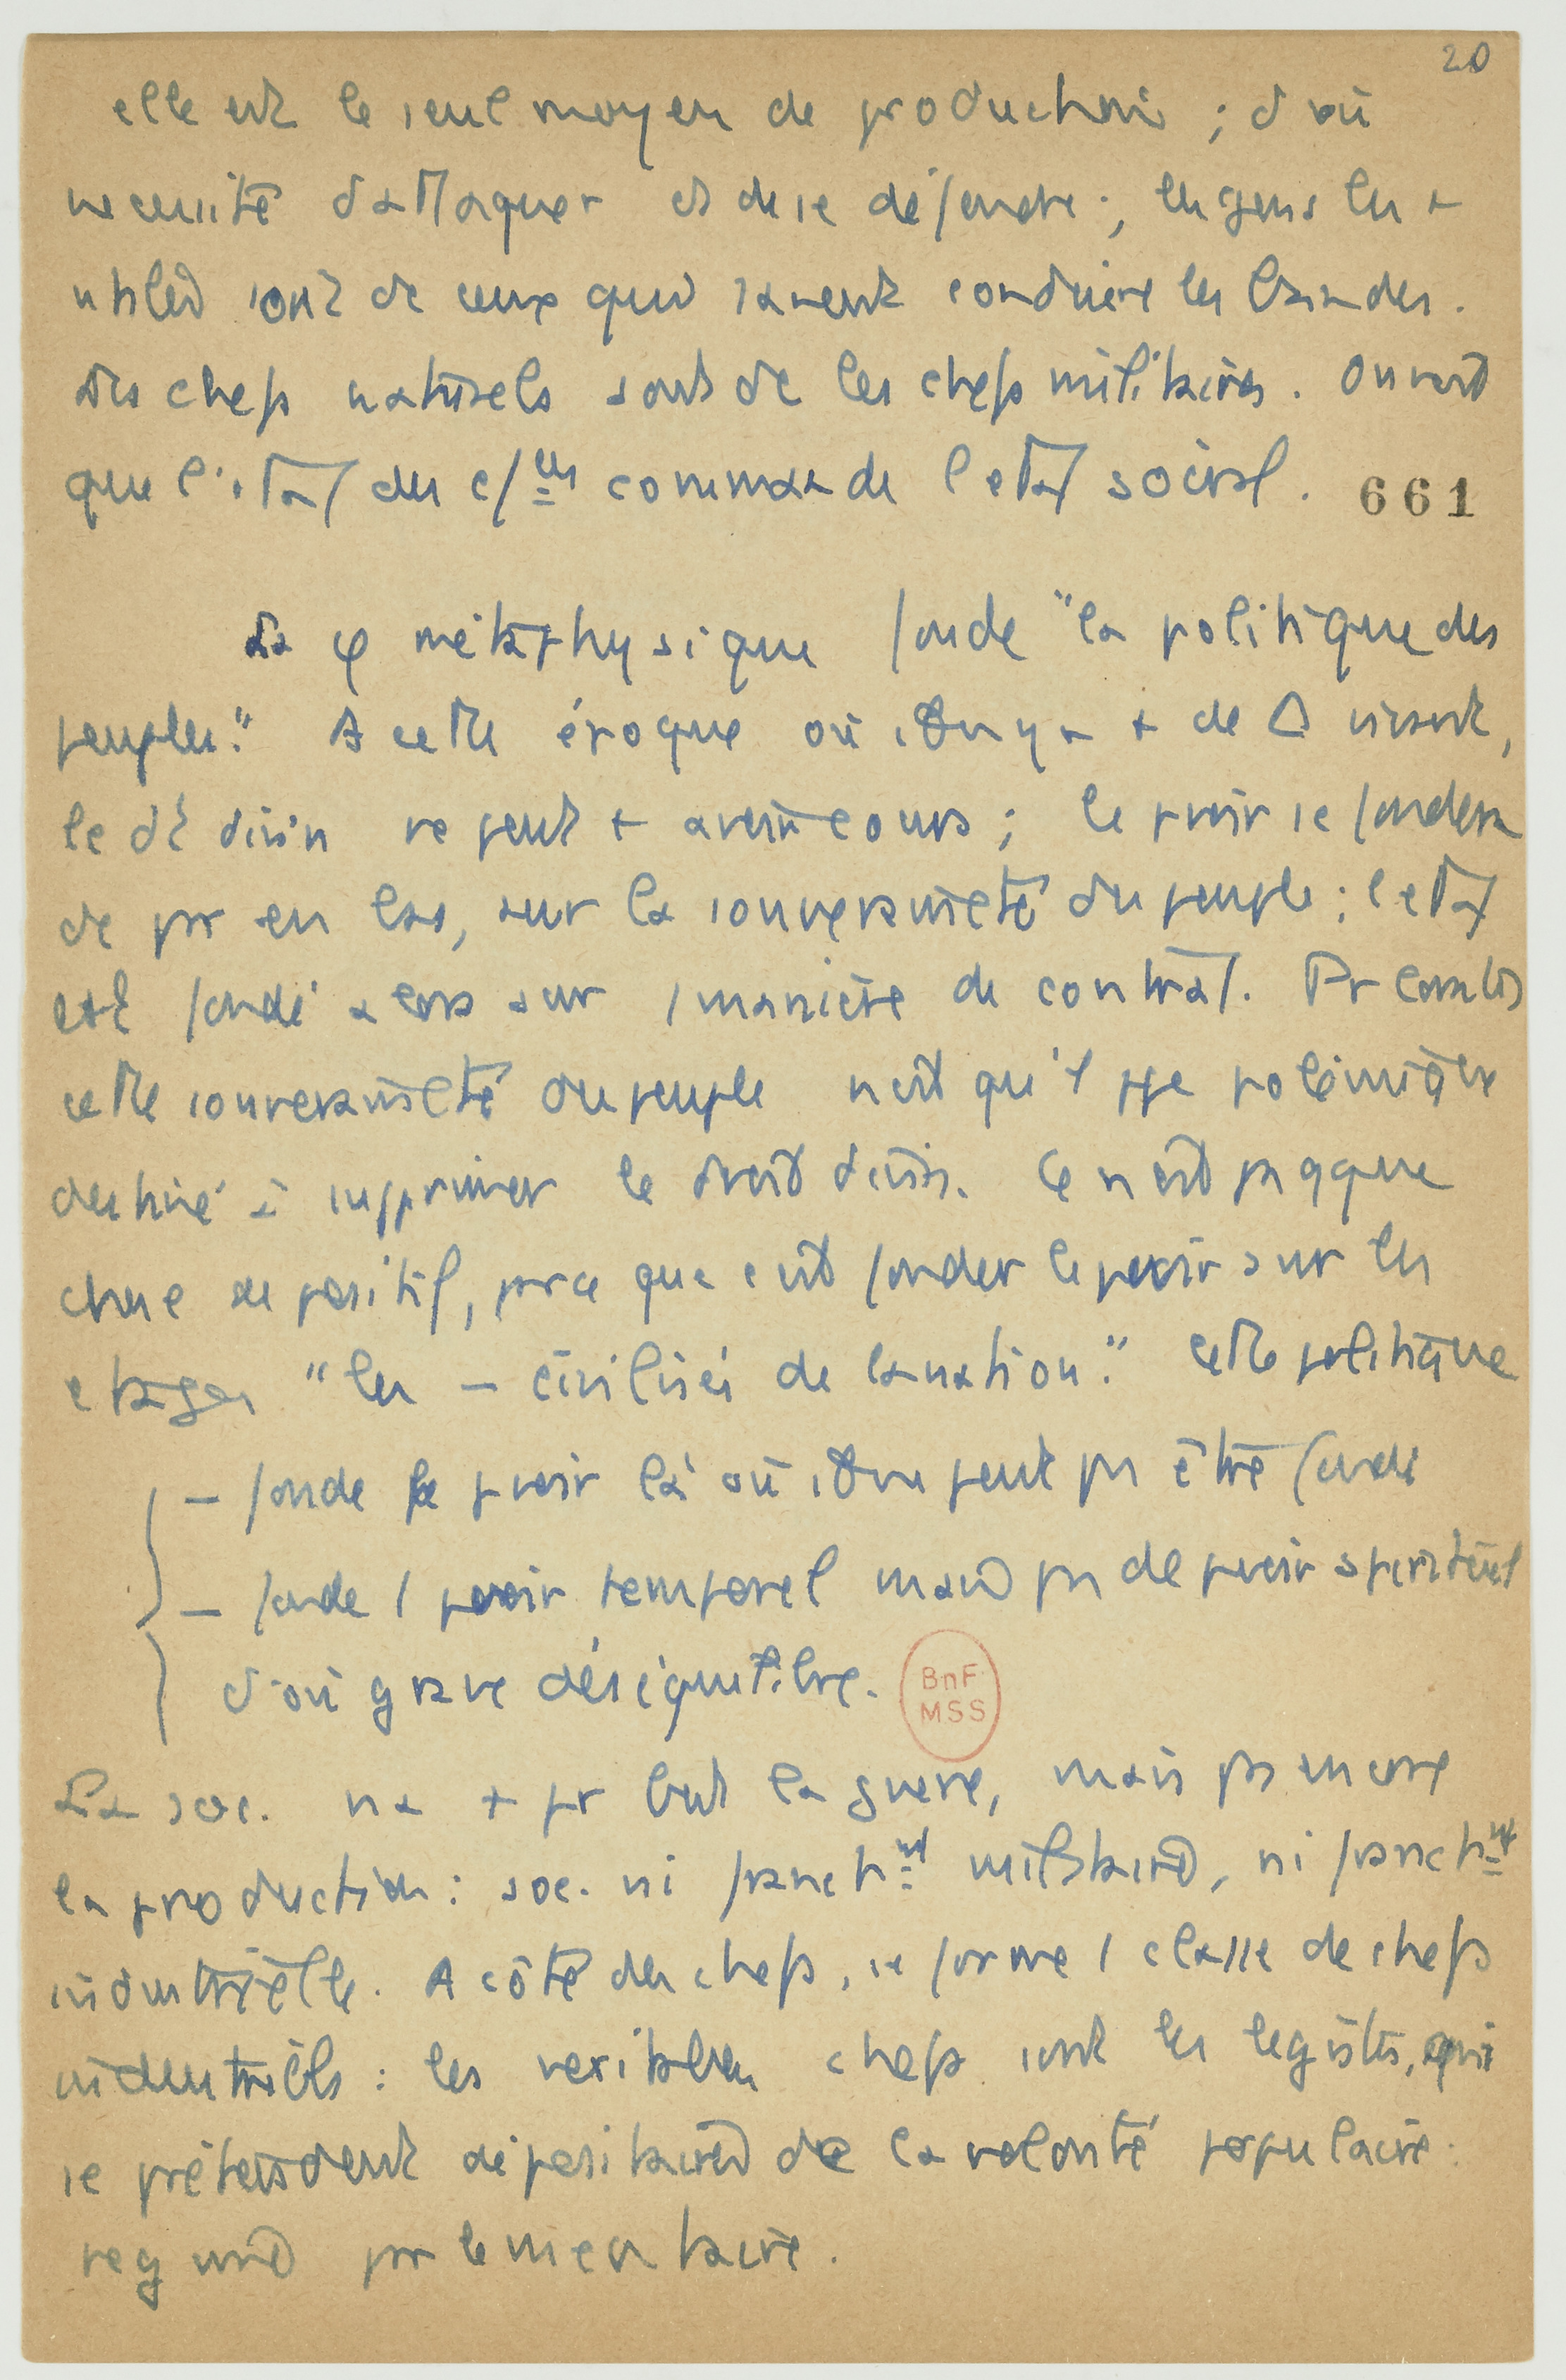 20
elle est le seul moyen de production ; d'où
nécessité d'attaquer et de se défendre ; les gens les +
utiles sont dc ceux qui savent conduire les bandes.
Les chefs naturels sont dc les chefs militaires. On voit
que l'état des c/ces commande l'état social. 661
La φ métaphysique fonde "la politique des
peuples". A cette époque où il n'y a + de Δ vivant,
le dt divin ne peut + avoir cours ; le pvoir se fondera
dc par en bas, sur la souveraineté du peuple ; l'état
est fondé alors sur / manière de contrat. Pr Comte
cette souveraineté du peuple n'est qu'1 ppe polémique
destiné à supprimer le droit divin. Ce n'est pas qque
chose de positif, parce que c'est fonder le pvoir sur les
étages "les – civilisés de la nation". Cette politique
– fonde le pvoir là où il ne peut pas être fondé
– fonde 1 pvoir temporel mais pas de pvoir spirituel
d'où grave déséquilibre.
BnF
MSS
La soc. n'a + pr but la guerre, mais pas encore
la production : soc. ni franchmt militaire, ni franchmt
industrielle. A côté des chefs, se forme 1 classe de chefs
industriels : les véritables chefs sont les légistes, qui
se prétendent dépositaires de la volonté populaire :
régime parlementaire.